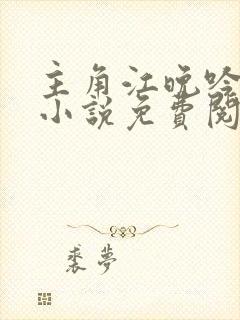 主角江晚吟
小说免費閱
裘夢